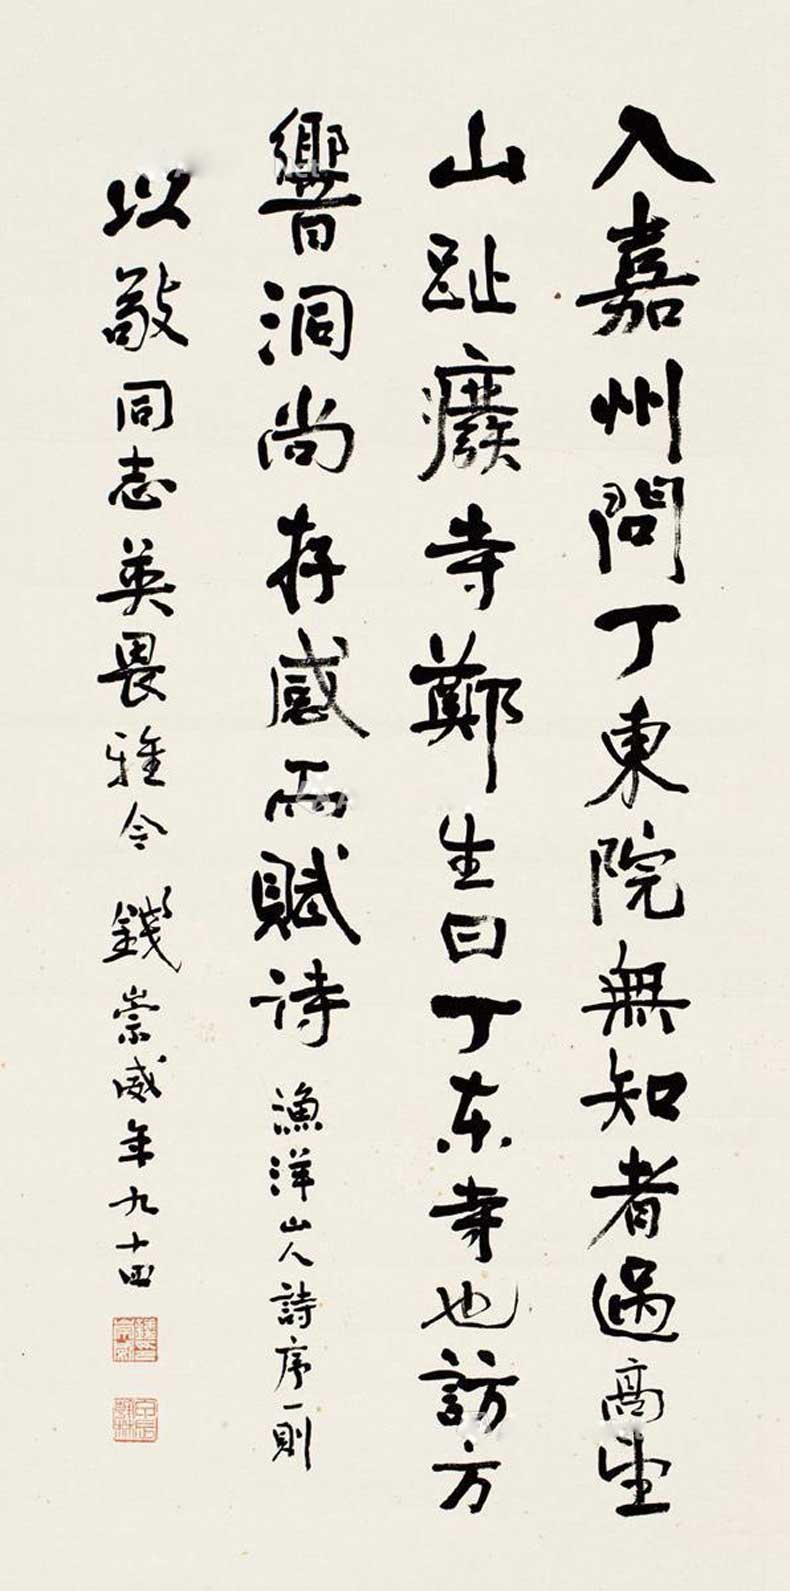 入嘉州問丁東院無知者過高望
山趾癈寺鄭生曰丁东寺也訪方
響洞尚存感而賦诗 漁洋山人詩序一則
以敬同志英畏雅令 錢崇威年九十四